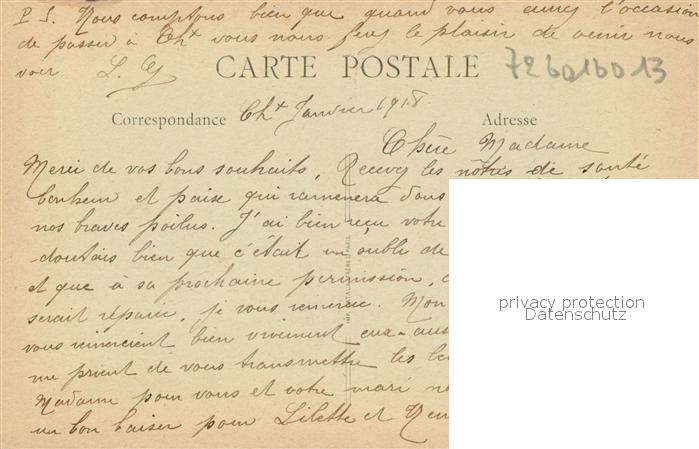 P S. Nous comptons bien que quand vous aurez l'occasion
de passer à Cht vous nous ferez le plaisir de venir nous
voir L. G
CARTE POSTALE
726016013
Correspondance
Cht Janvier 1918.
Adresse
Chère Madame
Merci de vos bons souhaits, Recevez les nôtres de santé
bonheur et paix qui ramenera dans
nos braves poilus. J'ai bien reçu votre
doutais bien que c'était un oubli de
et que à sa prochaine permission,
serait réparé, je vous remercie. Mon
vous remercient bien vivement eux-aus
me prient de vous transmettre les
Madame pour vous et votre mari
un bon baiser pour Lilette et
privacy protection
Datenschutz